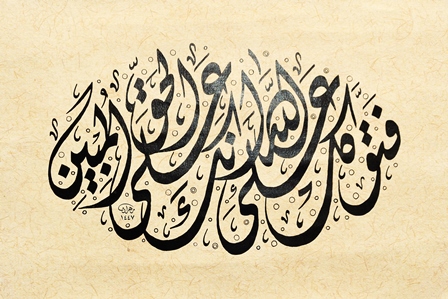 فتوكل على الله إنك على الحق المبين
١٤٤٧